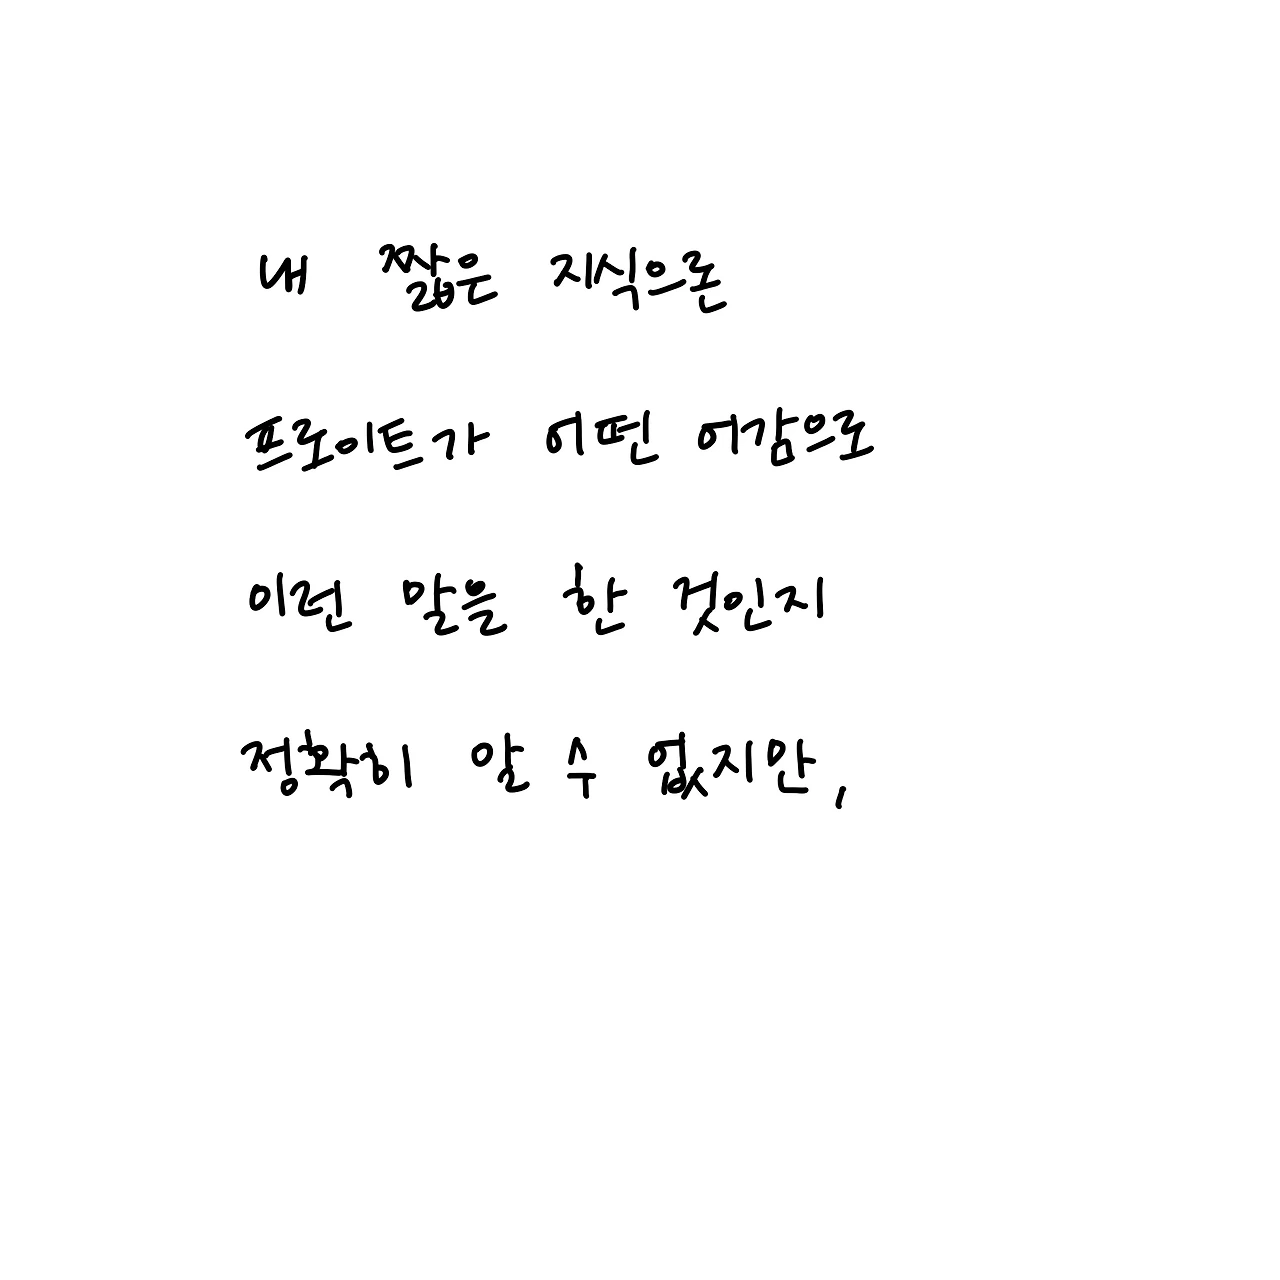 내 짧은 지식으론
프로이트가 어떤 어감으로
이런 말을 한 것인지
정확히 알 수 없지만,